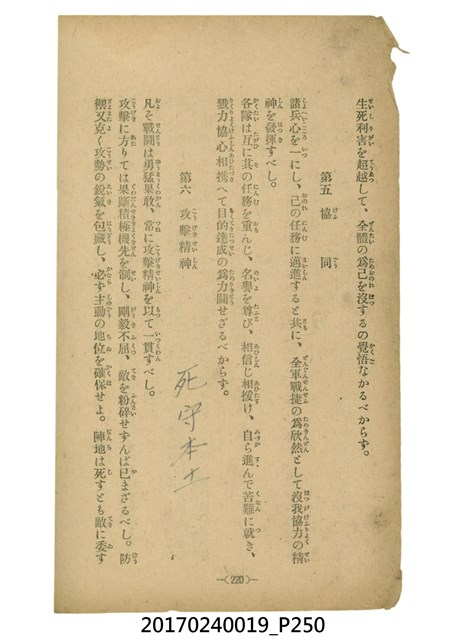 生死利害を超越して、全體の爲己を沒するの覺悟なかるべからず。
第五　協同
諸兵心を一にし、己の任務に邁進すると共に、全軍戰捷の爲欣然として沒我協力の精
神を發揮すべし。
各隊は互に其の任務を重んじ、名譽を尊び、相信じ相援け、自ら進んで苦難に就き、
戮力協心相携へて目的達成の爲力鬪せざるべからず。
第六　攻擊精神
凡そ戰鬪は勇猛果敢、常に攻擊精神を以て一貫すべし。
攻擊に方りては果斷積極機先を制し、剛毅不屈、敵を粉碎せずんば已まざるべし。防
禦又克く攻勢の銳氣を包藏し、必ず主動の地位を確保せよ。陣地は死すとも敵に委す
死守本土
—(220)—
20170240019_P250